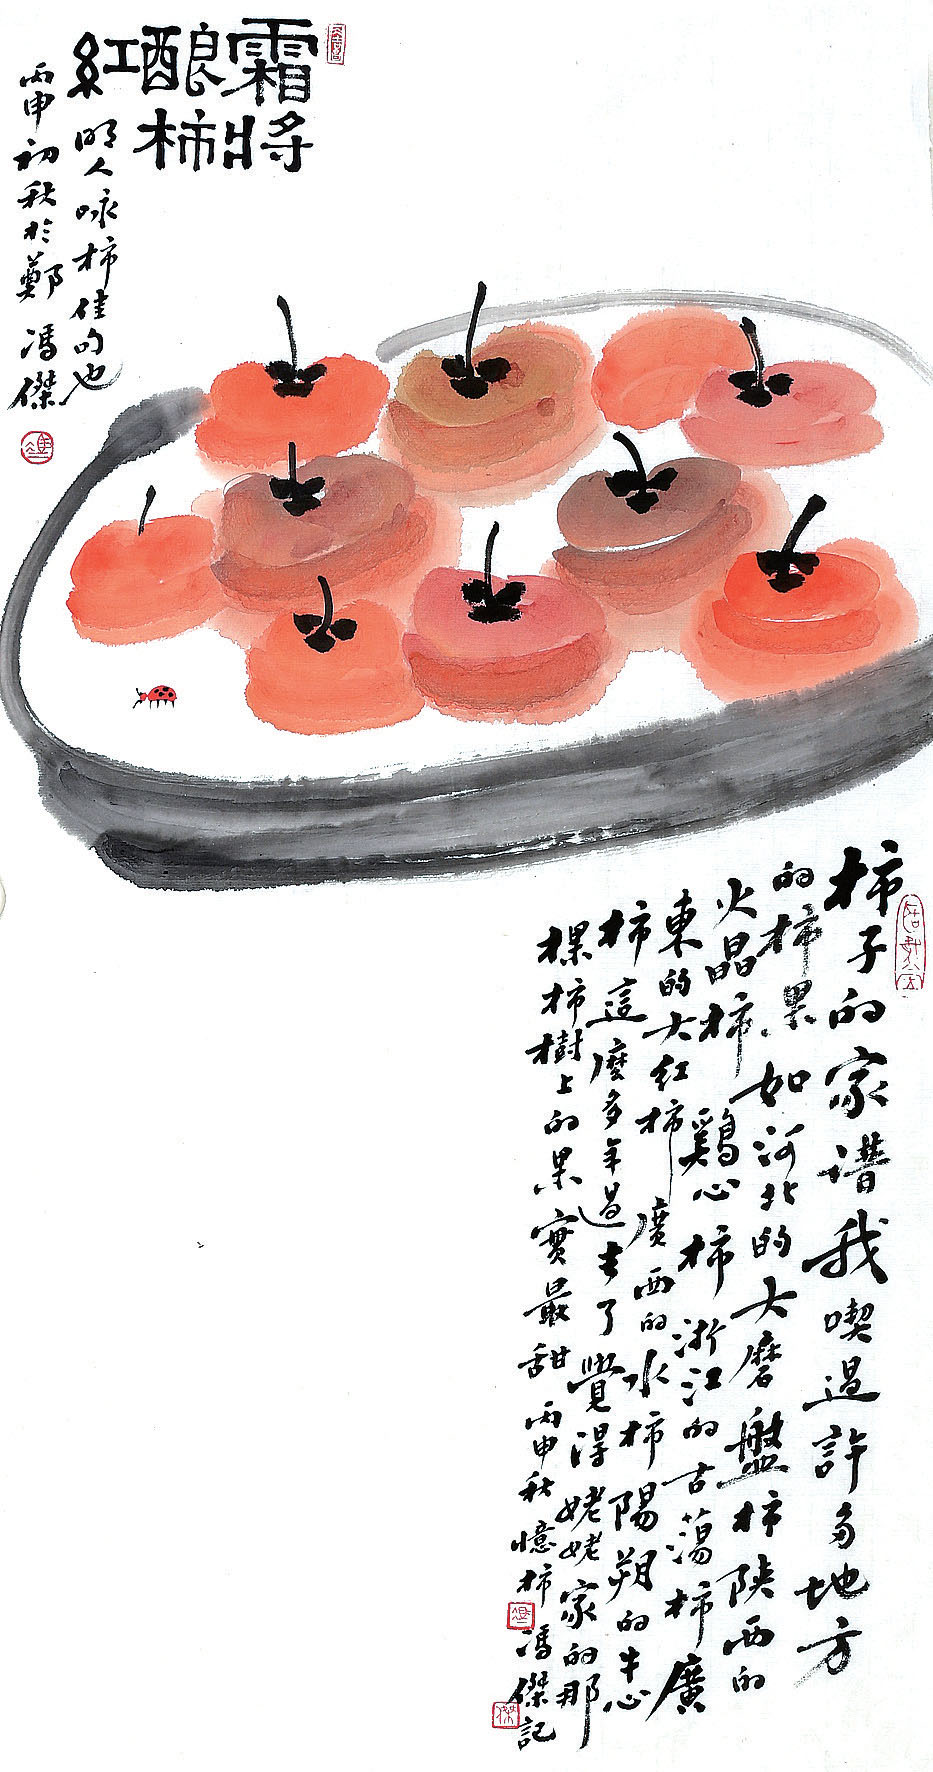 霜將
釀柿
紅
明人咏柿佳句也
丙申初秋於鄭 馮傑
柿子的家譜我喫過許多地方
的柿果如河北的大磨盤柿陝西的
火晶柿鷄心柿浙江的古蕩柿廣
東的大紅柿廣西的水柿陽朔的牛心
柿這麼多年過去了覺得姥姥家的那
棵柿樹上的果實最甜丙申秋憶柿馮傑記